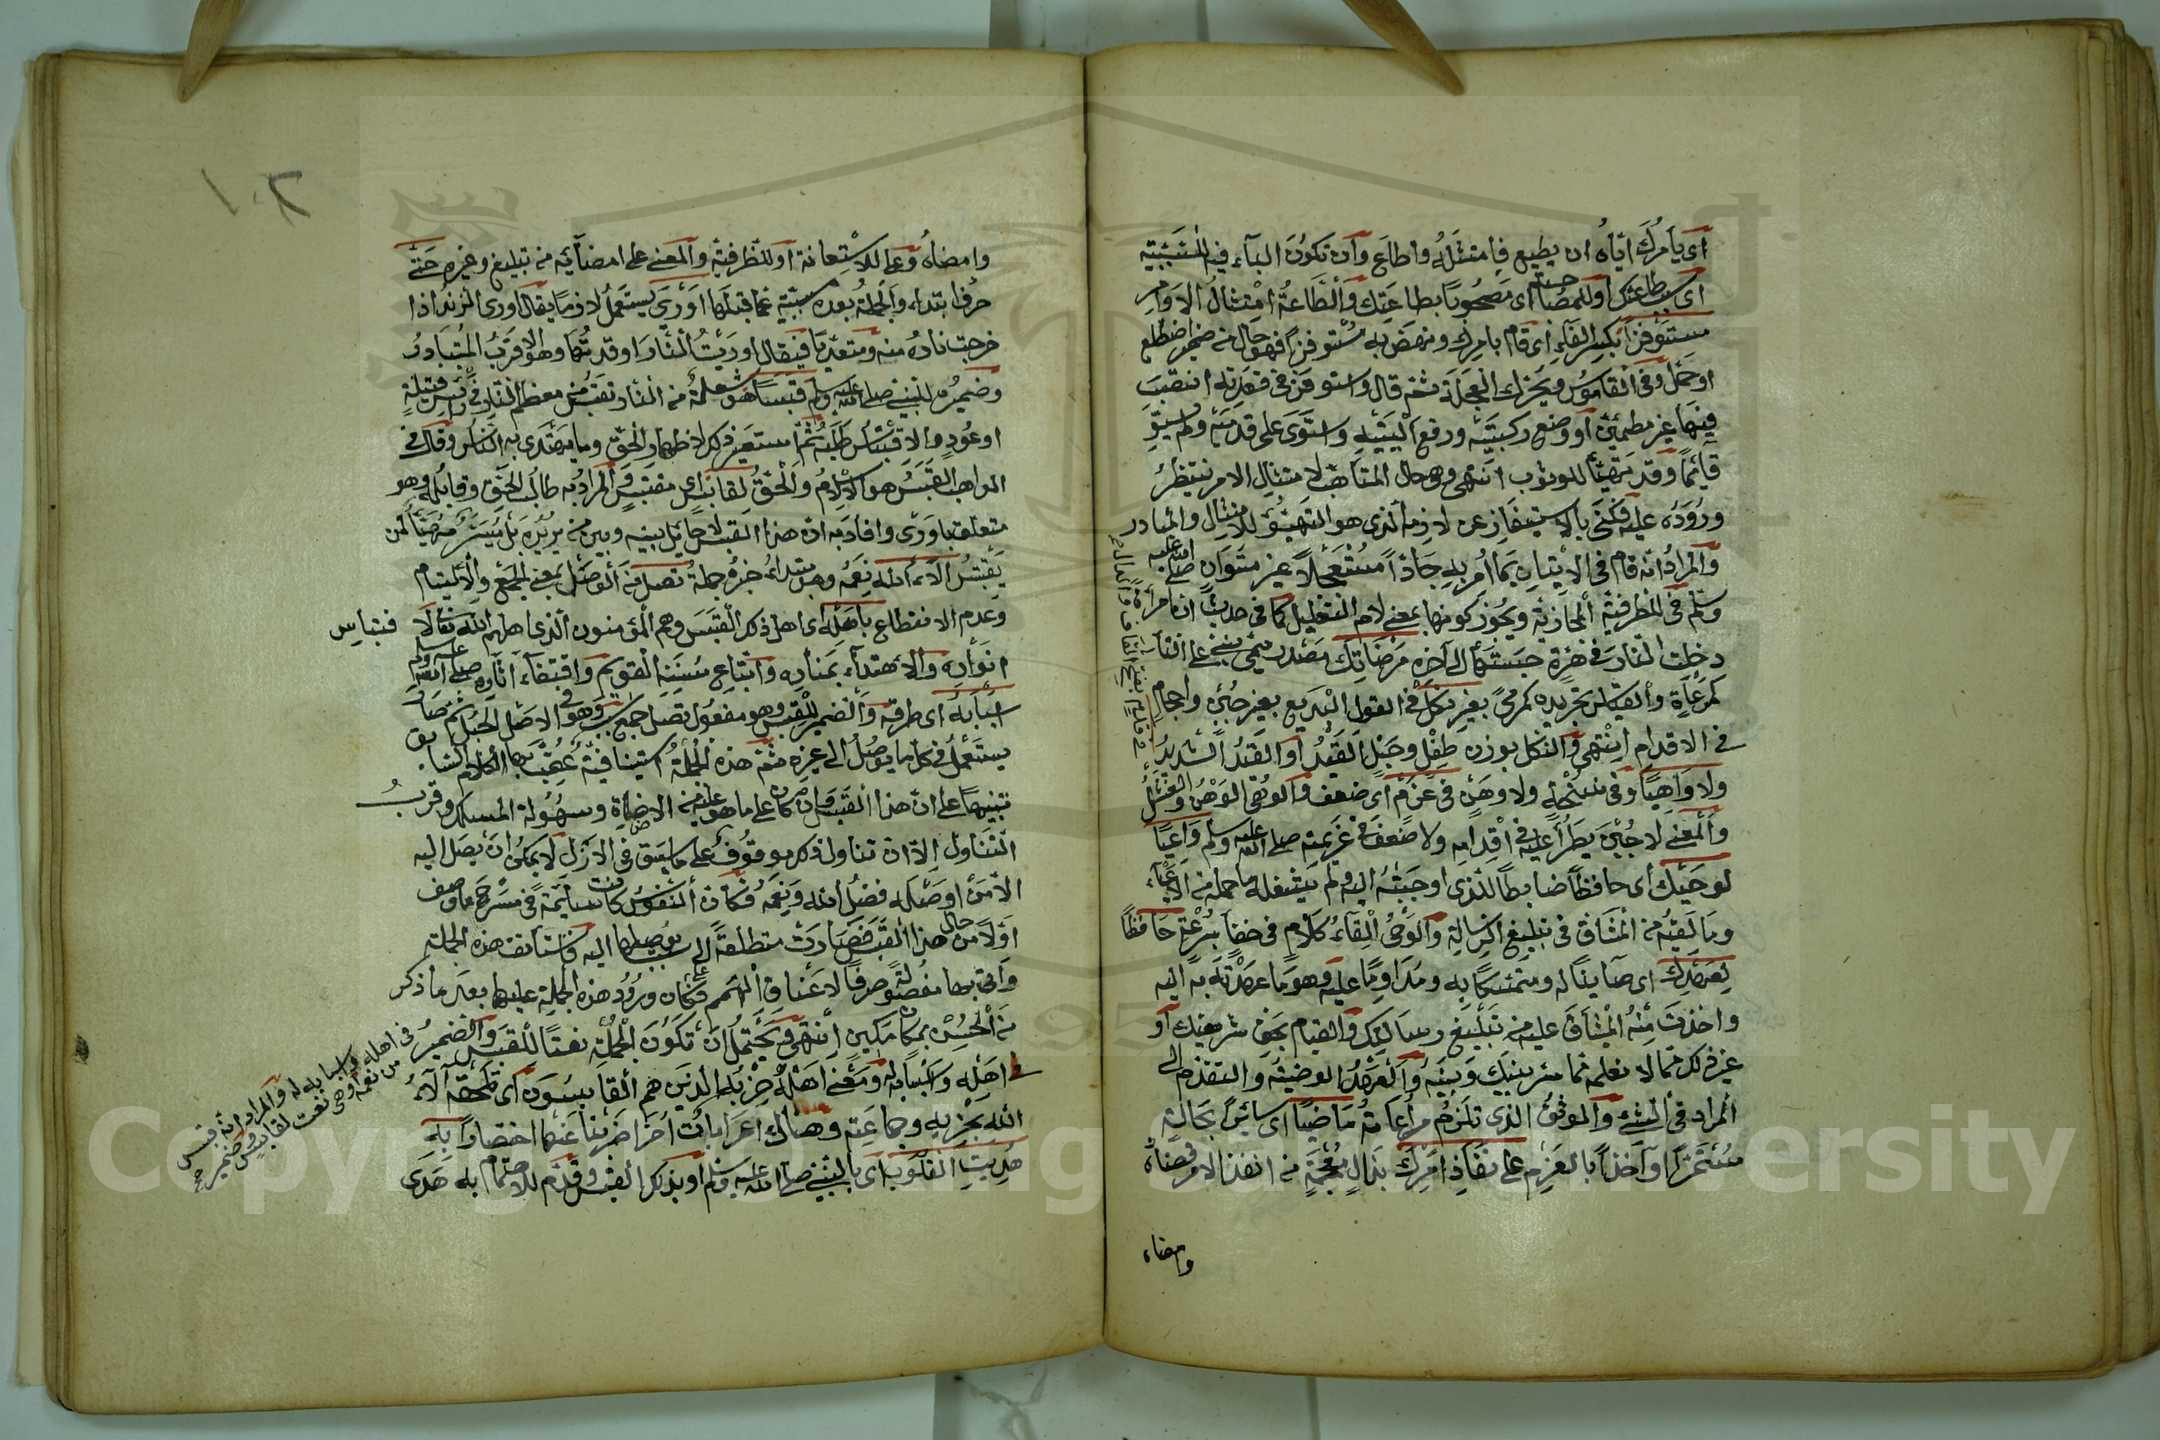 اى يأمرك اياه ان يطيع فامتثله واطاع وان تكون الباء فيه للسببية
اى بسبب طاعتك او للمصاحبة اى مصحوبا بطاعتك والطاعة امتثال الاوامر
مستوفزا بكسر الفاء اى قام بامرك ونهض به مستوفزا فهو حال من ضمير اضطلع
او حمل وفى القاموس ويحرك العجلة ثم قال واستوفز فى قعدته انتصب
فيها غير مطمئن او وضع ركبتيه ورفع اليتيه واستوى على قدميه ولم يستو
قائما وقد تهيأ للوثوب انتهى وهو حال المتأهب لامتثال الامر ينتظر
وروده عليه فكنى بالاستيفاز عن لازمه الذى هو التهيؤ للامتثال والمبادر
والمراد انه قام فى الاتيان بما امر به جادا مستعجلا غير متوان صلى الله عليه
وسلم فى الظرفية المجازية ويجوز كونها بمعنى لام التعليل كما فى حديث ان امرأة
دخلت النار فى هرة حبستها الى آخره مرضاتك مصدر ميمى بنى على التاء
كمرعاة والقياس تجريده كمرمى بغير نكل فى القول البديع بغير جبن واحجام
فى الاقدام انتهى والنكل بوزن طفل وجبل القيد او القيد الشديد
ولا واهيا وفى نسخة ولا وهن فى عزم اى ضعف والوهى الوهن والفشل
والمعنى لا جبن يطرأ عليه فى اقدامه ولا ضعف فى عزيمته صلى الله عليه وسلم واعيا
لوحيك اى حافظا ضابطا للذى اوحيته اليه ولم يشغله ما حمله من الاعباء
وما لقيه من المشاق فى تبليغ الرسالة والوحى القاء كلام فى خفاء بسرعة حافظا
لعهدك اى صاينا له ومتمسكا به ومداوما عليه وهو ما عهدته به اليه
واخذت منه الميثاق عليه من تبليغ رسالتك والقيام بحق شريعتك او
غير ذلك مما لا نعلمه مما سر بينك وبينه والعهد الوصية والتقدم الى
المراد فى الشىء والموثق الذى تلزم مراعاته ماضيا اى سايرا بحالة
مستمرا او آخذا بالعزم على نفاذ امرك بذال معجمة من انفذ الامر قضاه
وامضاه
وامضاه وعلى للاستعانة او للظرفية والمعنى على امضائه من تبليغ وغيره حتى
حرف ابتداء والجملة بعده مسببة عما قبلها اورى يستعمل لازما يقال اورى الزند اذا
خرجت ناره منه ومتعديا فيقال اوريت النار اوقدتها وهو الاقرب المتبادر
وضميره للنبى صلى الله عليه وسلم قبسا هو شعلة من النار تقتبس من معظم النار فى رأس فتيلة
او عود والاقتباس طلبه ثم استعير ذلك لاظهار الحق وما يهتدى به الناس وقال فى
المواهب القبس هو الاسلام والحق لقابس اى مقتبس والمراد به طالب الحق وقابله وهو
متعلق باورى وافاد به ان هذا القبس لا حائل بينه وبين من يريده بل ميسر مهيأ لمن
يقتبس آلاء الله نعمه وهو مبتداء خبره جملة تصل من الوصل بمعنى الجمع والالتيام
وعدم الانقطاع باهله اى اهل ذلك القبس وهم المؤمنون الذى اهلهم الله تعالى لاقتباس
انواره والاهتداء بمناره واتباع سننه القويم واقتفاء آثاره صلى الله عليه وسلم
اسبابه اى طرقه والضمير للقبس وهو مفعول تصل جمع سبب وهو فى الاصل الحبل ثم صار
يستعمل فى كل ما يوصل الى غيره ثم هذه الجملة استينافية عقب بها الكلام السابق
تنبيها على ان هذا القبس وان كان على ما هو عليه من الاضاءة وسهولة المسلك وقرب
التناول الا ان تناول ذلك موقوف على ما سبق فى الازل لا يمكن ان يصل اليه
الا من اوصله فضل الله ونعمه فكأن النفوس كانت سايمة فى مسرح ما وصف
اولا من حال هذا القبس فصارت متطلعة الى سبب يوصلها اليه فاستأنف هذه الجملة
واتى بها مفصولة صرفا لاعناق الهمم فكان ورود هذه الجملة عليها بعد ما ذكر
من الحسن بمكان مكين انتهى ويحتمل ان تكون الجملة نعتا للقبس والضمير
فى اهله واسبابه له ومعنى اهله حزبه الذين هم القابسون اى تلحقه آلاء
الله بحزبه وجماعته وهناك اعرابات أخر اضربنا عنها اختصارا به
هديت القلوب اى بالنبى صلى الله عليه وسلم او بذلك القبس وقدم للاهتمام به هدى